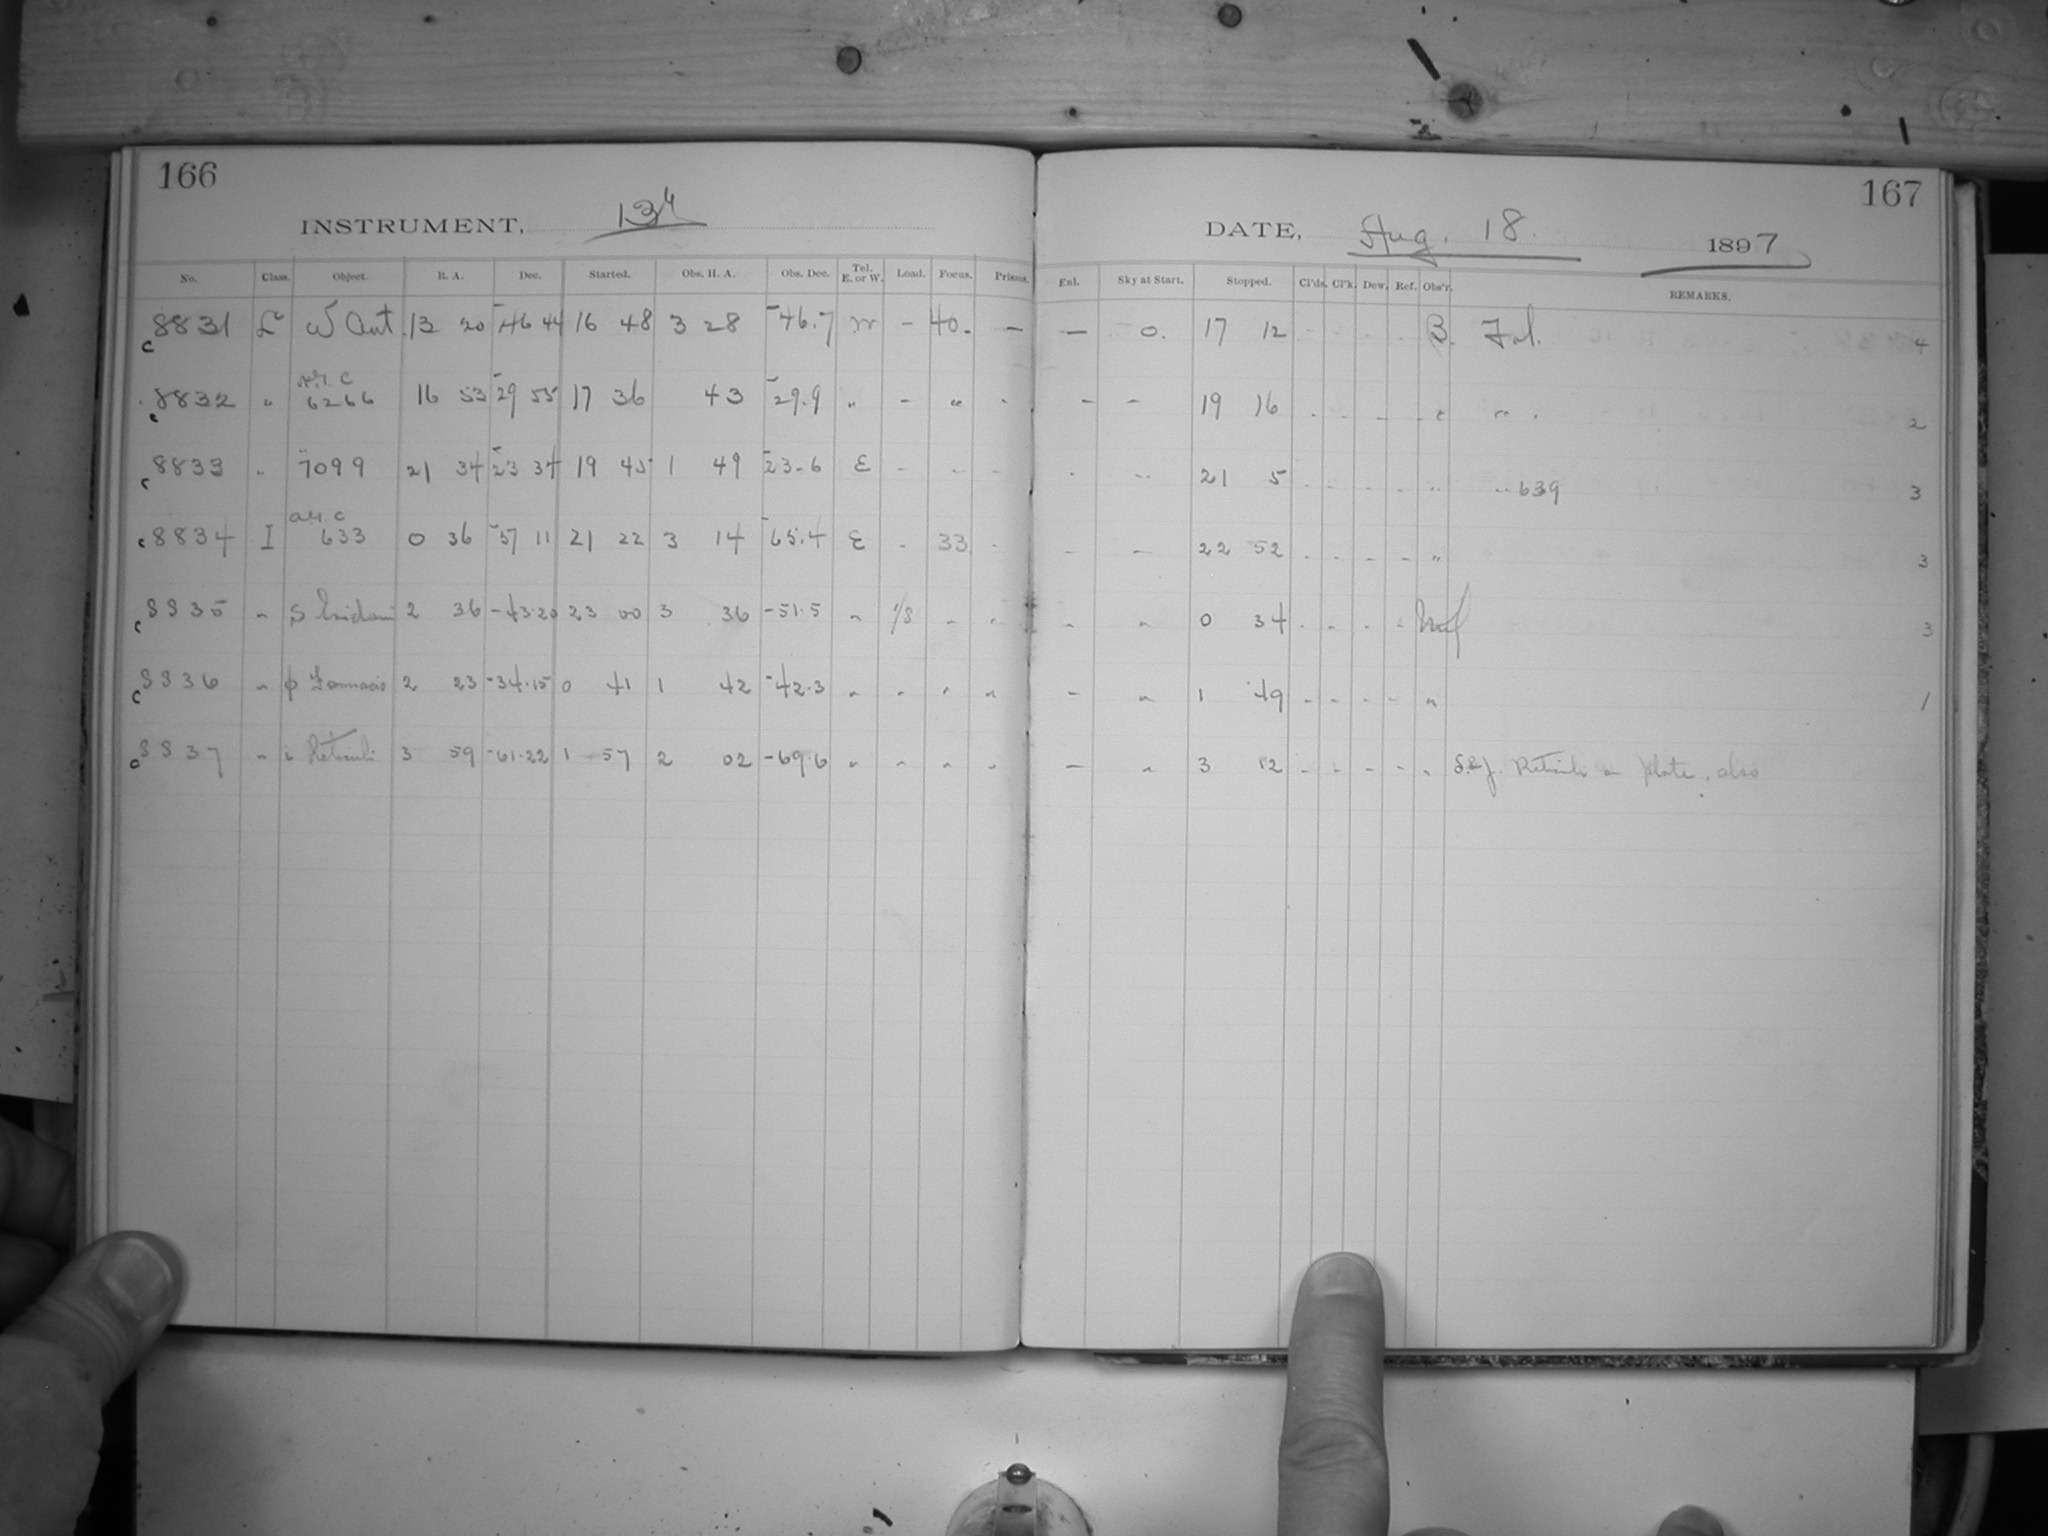 166
INSTRUMENT, 13"
No. Class. Object. R. A. Dec. Started. Obs. H. A. Obs. Dec. Tel. E. or W. Load. Focus. Prisms.
c 8831 L ω Cent. 13 20 -46 44 16 48 3 28 -46.7 W - 40. -
c 8832 " A.G.C. 6266 16 53 -29 55 17 36 43 -29.9 " - " -
c 8833 " 7099 21 34 -23 34 19 45 1 49 -23.6 E - - -
c 8834 I A.G.C. 633 0 36 -57 11 21 22 3 14 -65.4 E - 33 -
c 8835 " S Eridani 2 36 -43.20 23 00 3 36 -51.5 " 1/8 " "
c 8836 " φ Fornacis 2 23 -34.15 0 41 1 42 -42.3 " " " "
c 8837 " ι Reticuli 3 59 -61.22 1 57 2 02 -69.6 " " " "
167
DATE, Aug. 18. 1897
Enl. Sky at Start. Stopped. Cl'ds. Cl'k. Dew. Ref. Obs'r. REMARKS.
- 0. 17 12 - - - - B. Fol. 4
- - 19 16 - - - - " " . 2
- - 21 5 - - - - " " 639 3
- - 22 52 - - - - " 3
- " 0 34 - - - - 3
- " 1 49 - - - - " 1
- " 3 12 - - - - " Reticuli on plate, also